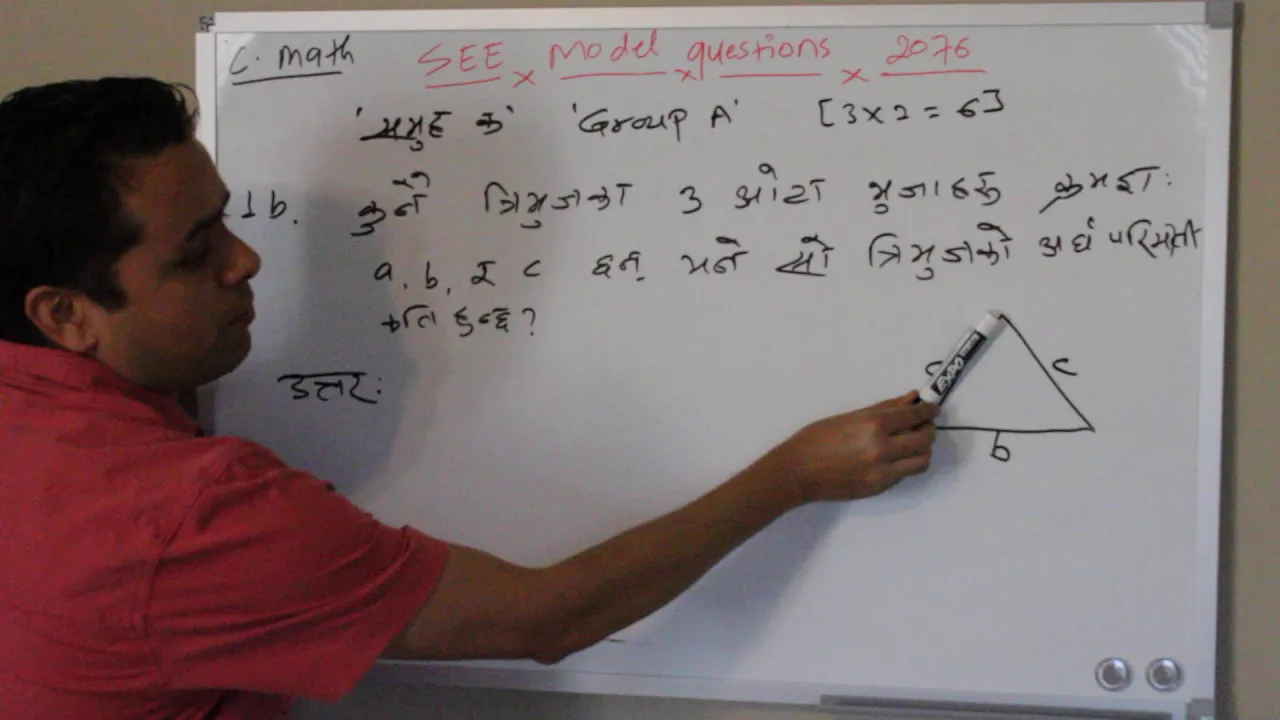 C. Math SEE Model questions 2076
'समुह क' 'Group A' [3 x 2 = 6]
1b. कुनै त्रिभुजका ३ ओटा भुजाहरु क्रमशः
a, b, र c छन् भने सो त्रिभुजको अर्ध परिमिती
कति हुन्छ?
उत्तर:
c
b
EXPO